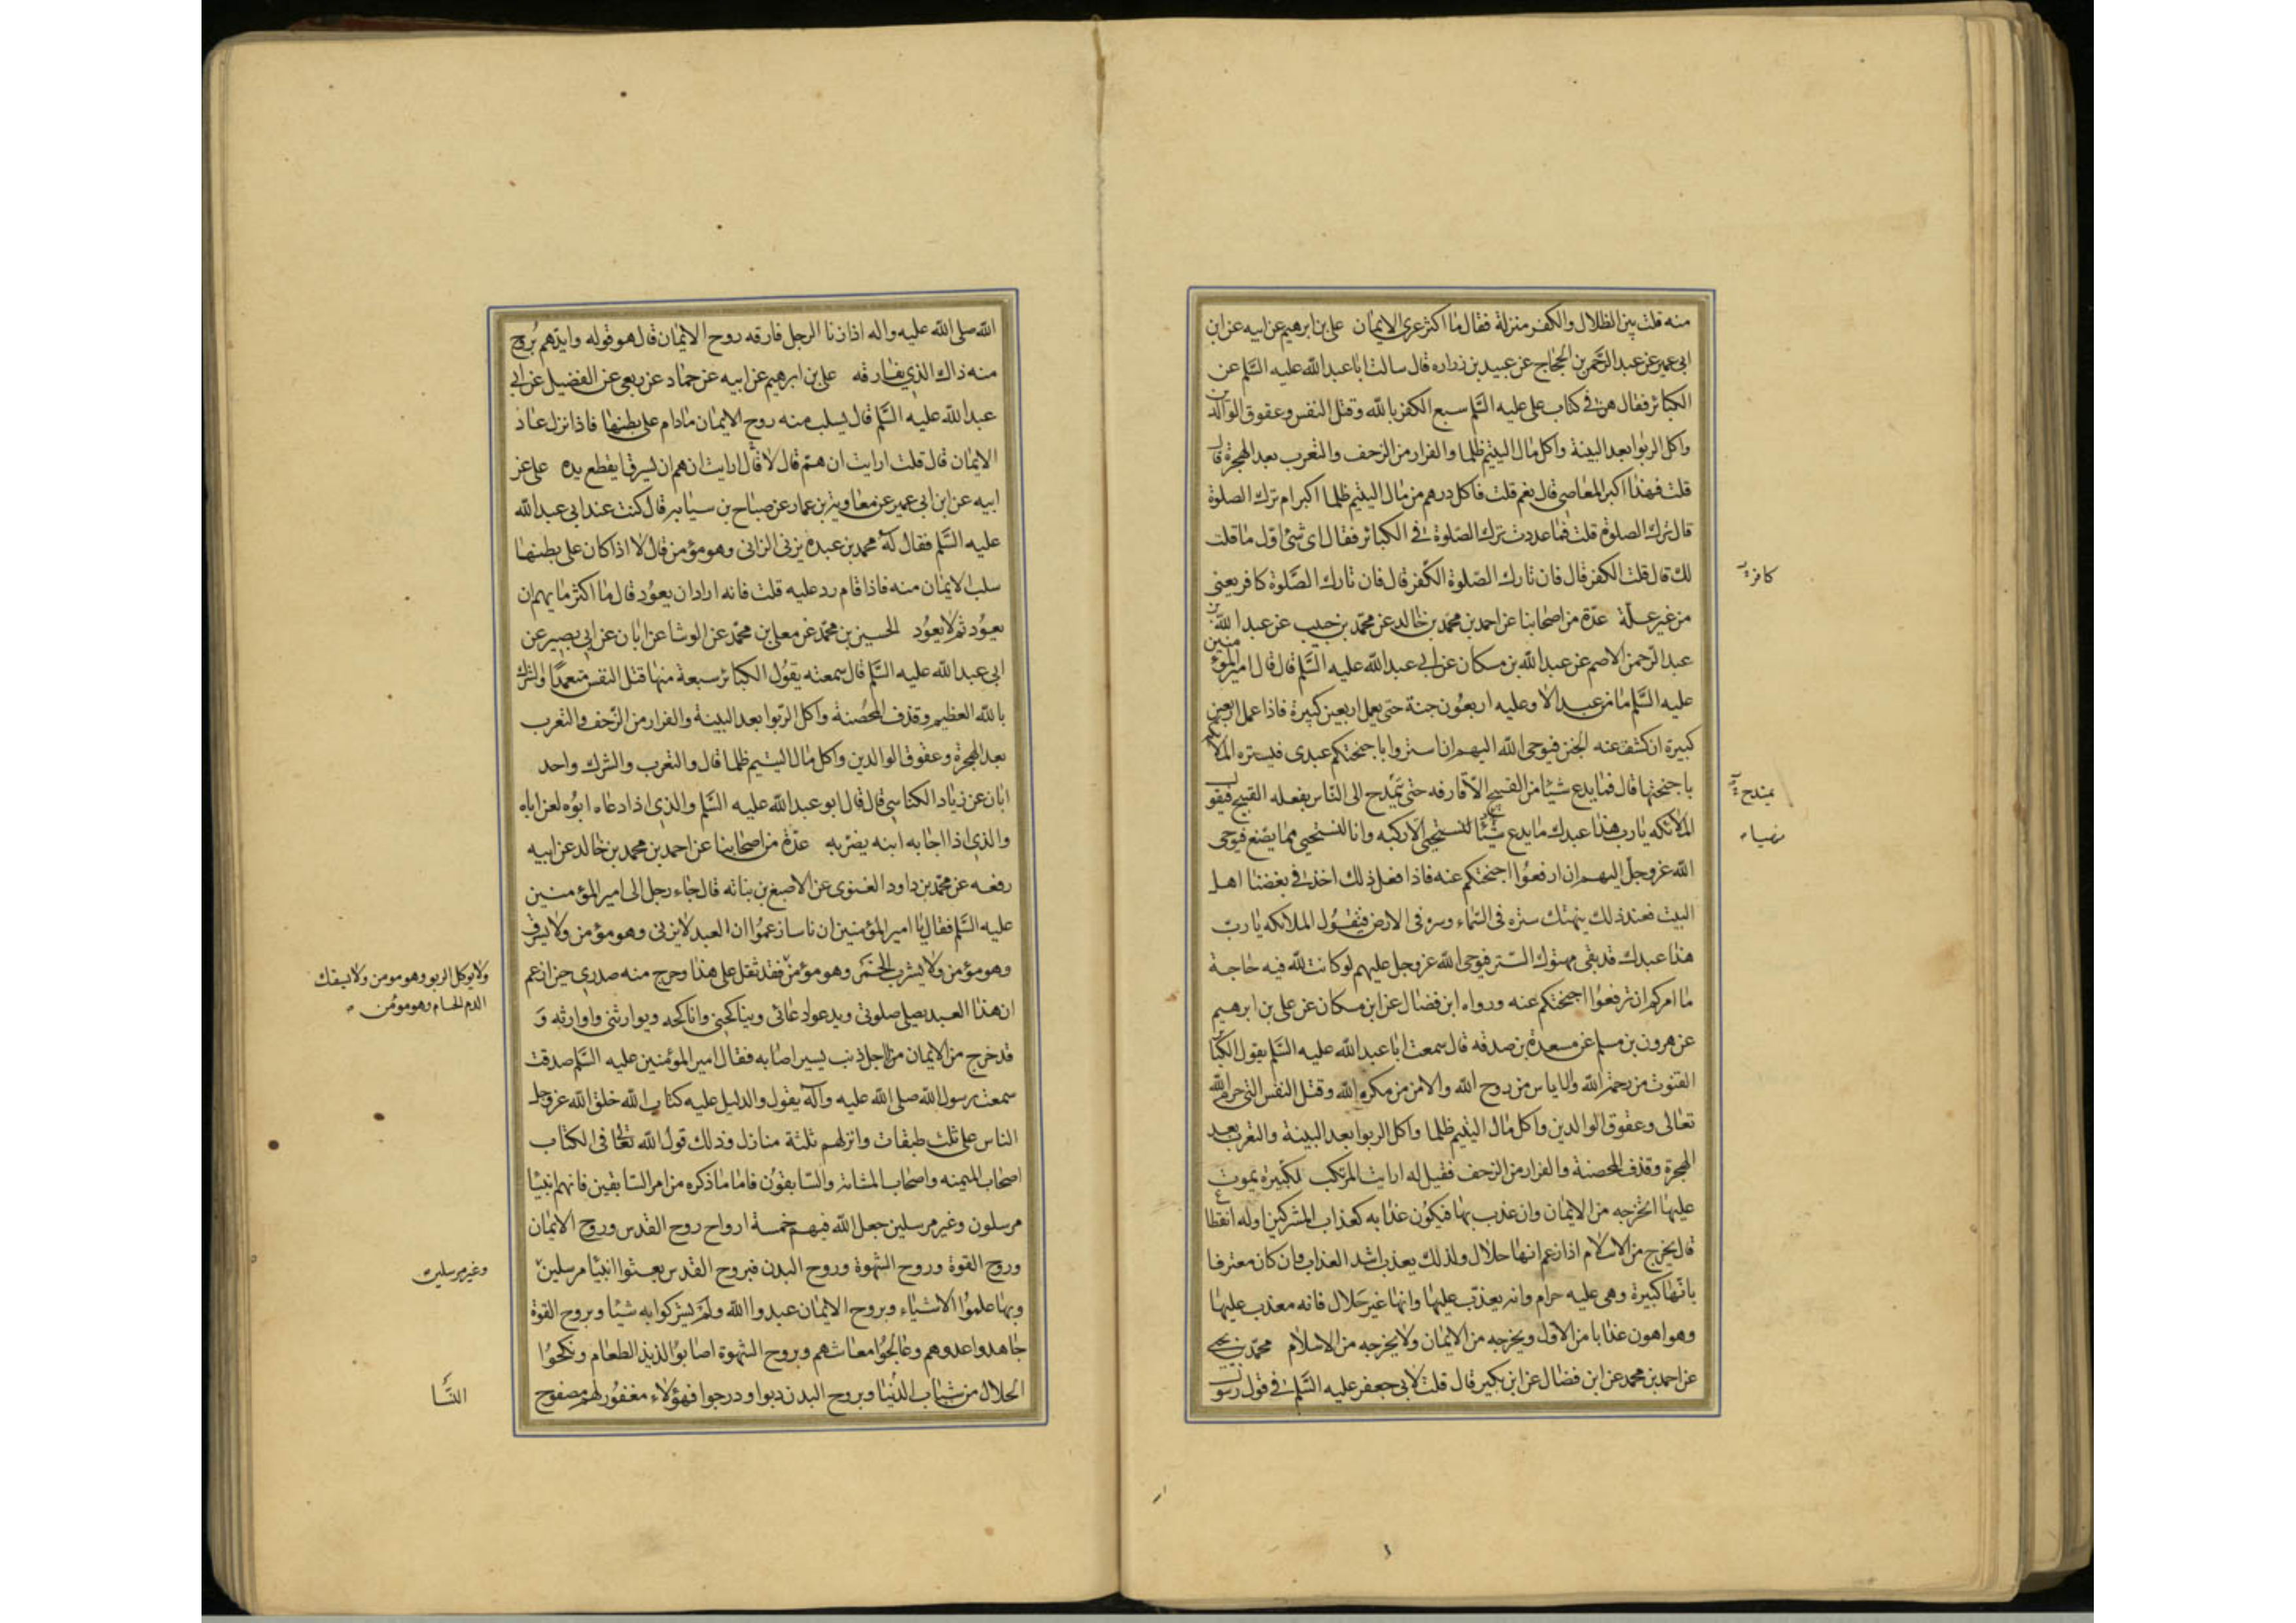 منه قلت بين الظلال والكفر منزلة فقال ما اكثر عرى الايمان على بن ابرهيم عن ابيه عن ابن
ابى عمير عن عبد الرحمن بن الحجاج عن عبيد بن زراره قال سالت ابا عبد الله عليه السلم عن
الكبائر فقال هن في كتاب على عليه السلم سبع الكفر بالله وقتل النفس وعقوق الوالدين
واكل الربوا بعد البينة واكل مال اليتيم ظلما والفرار من الزحف والتغرب بعد الهجرة قال
قلت فهذا اكبر المعاصى قال نعم قلت فاكل درهم من مال اليتيم ظلما اكبر ام ترك الصلوة
قال ترك الصلوة قلت فما عددت ترك الصلوة في الكبائر فقال اى شئ اول ما قلت
لك قال قلت الكفر قال فان تارك الصلوة الكفر قال فان تارك الصلوة كافر يعنى
كافر
من غير علة عدة من اصحابنا عن احمد بن محمد بن خالد عن محمد بن حبيب عن عبد الله بن
عبد الرحمن الاصم عن عبد الله بن مسكان عن ابى عبد الله عليه السلم قال قال امير المؤمنين
عليه السلم ما من عبد الا وعليه اربعون جنة حتى يعمل اربعين كبيرة فاذا عمل اربعين
كبيرة انكشف عنه الجنن فيوحى الله اليهم ان استروا باجنحتكم عبدى فتستره الملائكه
باجنحتها قال فما يدع شيئا من القبيح الا قارفه حتى يمتدح الى الناس بفعله القبيح فيقول
يمتدح
الملائكه يا رب هذا عبدك ما يدع شيئا الا ركبه وانا لنستحيى مما يصنع فيوحى
الله عز وجل اليهم ان ارفعوا اجنحتكم عنه فاذا فعل ذلك اخذ في بغضنا اهل
البيت فعند ذلك ينهتك ستره فى السماء وستره فى الارض فيقول الملائكه يا رب
هذا عبدك قد بقى مهتوك الستر فيوحى الله عز وجل عليهم لو كانت لله فيه حاجة
ما امركم ان ترفعوا اجنحتكم عنه ورواه ابن فضال عن ابن مسكان عن على بن ابرهيم
عن هرون بن مسلم عن مسعدة بن صدقه قال سمعت ابا عبد الله عليه السلم يقول الكبائر
القنوت من رحمة الله والاياس من روح الله والامن من مكر الله وقتل النفس التى حرم الله
تعالى وعقوق الوالدين واكل مال اليتيم ظلما واكل الربوا بعد البينة والتغرب بعد
الهجرة وقذف المحصنة والفرار من الزحف فقيل له ارايت المرتكب للكبيره يموت
عليها اتخرجه من الايمان وان عذب بها فيكون عذابه كعذاب المشركين او له انقطاع
قال يخرج من الاسلام اذا زعم انها حلال ولذلك يعذب اشد العذاب وان كان معترفا
بانها كبيرة وهى عليه حرام وانه يعذب عليها وانها غير حلال فانه معذب عليها
وهو اهون عذابا من الاول ويخرجه من الايمان ولا يخرجه من الاسلام محمد بن يحيى
عن احمد بن محمد عن ابن فضال عن ابن بكير قال قلت لابى جعفر عليه السلم في قول رسول
الله صلى الله عليه واله اذا زنا الرجل فارقه روح الايمان قال هو قوله وايدهم بروح
منه ذاك الذى يفارقه على بن ابرهيم عن ابيه عن حماد عن ربعى عن الفضيل عن ابى
عبد الله عليه السلم قال يسلب منه روح الايمان ما دام على بطنها فاذا نزل عاد
الايمان قال قلت ارايت ان هم قال لا قال ارايت ان هم ان يسرق ايقطع يده على عن
ابيه عن ابن ابى عمير عن معاوية بن عمار عن صباح بن سيابه قال كنت عند ابى عبد الله
عليه السلم فقال له محمد بن عبده يزنى الزانى وهو مؤمن قال لا اذا كان على بطنها
سلب الايمان منه فاذا قام رد عليه قلت فانه اراد ان يعود قال ما اكثر ما يهم ان
يعود ثم لا يعود الحسين بن محمد عن معلى بن محمد عن الوشا عن ابان عن ابى بصير عن
ابى عبد الله عليه السلم قال سمعته يقول الكبائر سبعة منها قتل النفس متعمدا والشرك
بالله العظيم وقذف المحصنة واكل الربوا بعد البينة والفرار من الزحف والتغرب
بعد الهجرة وعقوق الوالدين واكل مال اليتيم ظلما قال والتغرب والشرك واحد
ابان عن زياد الكناسى قال قال ابو عبد الله عليه السلم والذى اذا دعاه ابوه لعن اباه
والذى اذا اجابه ابنه يضربه عدة من اصحابنا عن احمد بن محمد بن خالد عن ابيه
رفعه عن محمد بن داود الغنوى عن الاصبغ بن نباته قال جاء رجل الى امير المؤمنين
عليه السلم فقال يا امير المؤمنين ان ناسا زعموا ان العبد لا يزنى وهو مؤمن ولا يسرق
وهو مؤمن ولا يشرب الخمر وهو مؤمن فقد ثقل على هذا وحرج منه صدرى حين ازعم
ولا ياكل الربو وهو مومن ولا يسفك
الدم الحرام وهو مومن
ان هذا العبد يصلى صلوتى ويدعو ادعائى ويناكحنى واناكحه ويوارثنى واوارثه و
قد خرج من الايمان من اجل ذنب يسير اصابه فقال امير المؤمنين عليه السلم صدقت
سمعت رسول الله صلى الله عليه وآله يقول والدليل عليه كتاب الله خلق الله عز وجل
الناس على ثلث طبقات وانزلهم ثلثة منازل وذلك قول الله تعالى فى الكتاب
اصحاب الميمنه واصحاب المشامة والسابقون فاما ما ذكره من امر السابقين فانهم انبيا
مرسلون وغير مرسلين جعل الله فيهم خمسة ارواح روح القدس وروح الايمان
وروح القوة وروح الشهوة وروح البدن فبروح القدس بعثوا انبيا مرسلين
وغير مرسلين
وبها علموا الاشياء وبروح الايمان عبدوا الله ولم يشركوا به شيئا وبروح القوة
جاهدوا عدوهم وعالجوا معاشهم وبروح الشهوة اصابوا لذيذ الطعام ونكحوا
الحلال من شباب الدنيا وبروح البدن دبوا ودرجوا فهؤلاء مغفور لهم مصفوح